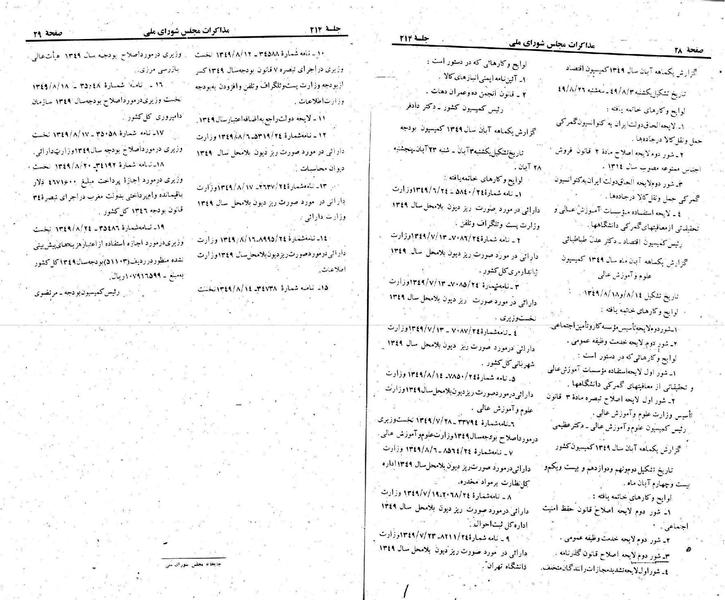 صفحه ۲۸
مذاکرات مجلس شورای ملی
جلسه ۲۱۲
گزارش یکماهه آبان سال ۱۳۴۹ کمیسیون اقتصاد
تاریخ تشکیل یکشنبه ۴۹/۸/۳ - سه‌شنبه ۴۹/۸/۲۶
لوایح و کارهای خاتمه یافته :
۱ـ لایحه الحاق دولت ایران به کنوانسیون گمرکی
حمل و نقل کالا در جاده‌ها.
۲ـ شور دوم لایحه اصلاح مادة ۲ قانون فروش
اجناس ممنوعه مصوب سال ۱۳۱۴.
۳ـ شور دوم لایحه الحاق دولت ایران به کنوانسیون
گمرکی حمل و نقل کالا در جاده‌ها.
۴ـ لایحه استفاده مؤسسات آموزش عالی و
تحقیقاتی از معافیتهای گمرکی دانشگاهها.
رئیس کمیسیون اقتصاد ـ دکتر عدل طباطبائی
گزارش یکماهه آبان ماه سال ۱۳۴۹ کمیسیون
علوم و آموزش عالی
تاریخ تشکیل ۸/۱۴ و ۱۳۴۹/۸/۱۸
لوایح و کارهای خاتمه یافته :
۱ـ شور دوم لایحه تأسیس مؤسسه کار و تأمین اجتماعی
۲ـ شور دوم لایحه خدمت وظیفه عمومی .
لوایح و کارهائی که در دستور است :
۱ـ شور اول لایحه استفاده مؤسسات آموزش عالی
و تحقیقاتی از معافیتهای گمرکی دانشگاهها .
۲ـ شور اول لایحه اصلاح تبصره مادة ۳ قانون
تأسیس وزارت علوم و آموزش عالی .
رئیس کمیسیون علوم و آموزش عالی ـ دکتر عظیمی
گزارش یکماهه آبان سال ۱۳۴۹ کمیسیون کشور
تاریخ تشکیل دوم و نهم و دوازدهم و بیست و یکم و
بیست و چهارم آبان ماه .
لوایح و کارهای خاتمه یافته :
۱ـ شور دوم لایحه اصلاح قانون حفظ امنیت
اجتماعی .
۲ـ شور دوم لایحه خدمت وظیفه عمومی .
۳ـ شور دوم لایحه اصلاح قانون گذرنامه .
۴ـ شور اول لایحه تشدید مجازات رانندگان متخلف.
لوایح و کارهائی که در دستور است :
۱ـ آئین‌نامه ایمنی انبارهای کالا .
۲ـ قانون انجمن ده و عمران دهات .
رئیس کمیسیون کشور ـ دکتر دادفر
گزارش یکماهه آبان سال ۱۳۴۹ کمیسیون بودجه
تاریخ تشکیل یکشنبه ۳ آبان ـ شنبه ۲۳ آبان پنجشنبه
۲۸ آبان .
لوایح و کارهای خاتمه یافته :
۱ـ نامه شمارة ۵۸۴۰/۲۴ ـ ۱۳۴۹/۶/۲۱ وزارت
دارائی در مورد صورت ریز دیون بلامحل سال ۱۳۴۹
وزارت پست و تلگراف و تلفن .
۲ـ نامه شمارة ۷۰۸۹/۲۴ ـ ۱۳۴۹/۷/۱۳ وزارت
دارائی در مورد صورت ریز دیون بلامحل سال ۱۳۴۹
ژاندارمری کل کشور .
۳ـ نامه شمارة ۷۰۸۵/۲۴ ـ ۱۳۴۹/۷/۱۳ وزارت
دارائی در مورد صورت ریز دیون بلامحل سال ۱۳۴۹
نخست‌وزیری .
۴ـ نامه شمارة ۷۰۸۷/۲۴ ـ ۱۳۴۹/۷/۱۳ وزارت
دارائی در مورد صورت ریز دیون بلامحل سال ۱۳۴۹
شهربانی کل کشور .
۵ـ نامه شمارة ۷۸۵۰/۲۴ ـ ۱۳۴۹/۸/۱۴ وزارت
دارائی در مورد صورت ریز دیون بلامحل سال ۱۳۴۹ وزارت
علوم و آموزش عالی .
۶ـ نامه شمارة ۳۳۷۹۴ ـ ۱۳۴۹/۷/۲۸ نخست‌وزیری
در مورد اصلاح بودجه سال ۱۳۴۹ وزارت علوم و آموزش عالی
۷ـ نامه شمارة ۸۵۶۴/۲۴ ـ ۱۳۴۹/۸/۶ وزارت
دارائی در مورد صورت ریز دیون بلامحل سال ۱۳۴۹ اداره
کل نظارت بر مواد مخدره .
۸ـ نامه شمارة ۲۰۶۸/۲۴ ـ ۱۳۴۹/۷/۱۹ وزارت
دارائی در مورد صورت ریز دیون بلامحل سال ۱۳۴۹
اداره کل ثبت احوال .
۹ـ نامه شمارة ۸۲۱۱/۲۴ ـ ۱۳۴۹/۷/۲۳ وزارت
دارائی در مورد صورت ریز دیون بلامحل سال ۱۳۴۹
دانشگاه تهران
جلسه ۲۱۲
مذاکرات مجلس شورای ملی
صفحه ۲۹
۱۰ـ نامه شمارة ۳۴۵۸۸ ـ ۱۳۴۹/۸/۱۲ نخست
وزیری در اجرای تبصره ۷ قانون بودجه سال ۱۳۴۹ کسر
از بودجه وزارت پست و تلگراف و تلفن و افزودن به بودجه
وزارت اطلاعات .
۱۱ـ لایحه دولت راجع به اضافه اعتبار سال ۱۳۴۹.
۱۲ـ نامه شمارة ۵۳۱۹/۲۴ ـ ۱۳۴۹/۸/۶ وزارت
دارائی در مورد صورت ریز دیون بلامحل سال ۱۳۴۹
دیوان محاسبات .
۱۳ـ نامه شمارة ۲۶۳۷/۲۴ ـ ۱۳۴۹/۸/۱۷ وزارت
دارائی در مورد صورت ریز دیون بلامحل سال ۱۳۴۹
وزارت دارائی .
۱۴ـ نامه شمارة ۸۹۹۵/۲۴ ـ ۱۳۴۹/۸/۱۶ وزارت
دارائی در مورد صورت ریز دیون بلامحل سال ۱۳۴۹ وزارت
اطلاعات .
۱۵ـ نامه شمارة ۳۴۷۳۸ ـ ۱۳۴۹/۸/۱۴ نخست
وزیری در مورد اصلاح بودجه سال ۱۳۴۹ هیأت عالی
بازرسی مرزی .
۱۶ـ نامه شمارة ۳۵۰۴۸ ـ ۱۳۴۹/۸/۱۸
نخست وزیری در مورد اصلاح بودجه سال ۱۳۴۹ سازمان
دامپروری کل کشور .
۱۷ـ نامه شمارة ۳۵۰۵۸ ـ ۱۳۴۹/۸/۱۷ نخست
وزیری در مورد اصلاح بودجه سال ۱۳۴۹ وزارت دارائی .
۱۸ـ نامه شمارة ۳۴۱۹۲ ـ ۱۳۴۹/۸/۲۰ نخست
وزیری در مورد اجازه پرداخت مبلغ ۴۶۷۱۶۰۰ دلار
باقیمانده وام پرداختی بدولت مغرب در اجرای تبصره ۳۴
قانون بودجه ۱۳۴۶ کل کشور .
۱۹ـ نامه شمارة ۳۵۴۸۶ ـ ۱۳۴۹/۸/۲۴ نخست
وزیری در مورد اجازه استفاده از اعتبار هزینه‌های پیش‌بینی
نشده منظور در ردیف (۵۱۱۰۳) بودجه سال ۱۳۴۹ کل کشور
بمبلغ ـ ۱۰۷۹۱۶۵۹۹ ریال .
رئیس کمیسیون بودجه ـ مرتضوی
چاپخانه مجلس شورای ملی